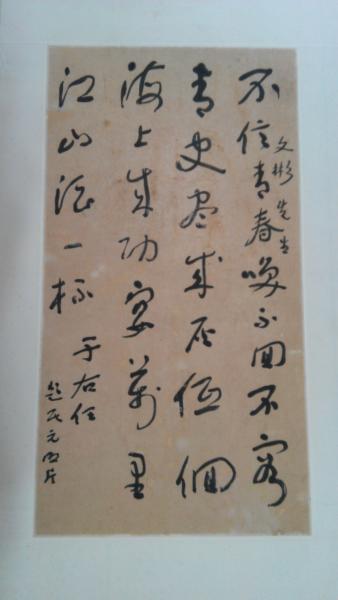 文彬先生
不信青春喚不回不容
青史尽成灰低佪
海上成功宴萬里
江山酒一杯
于右任
題民元照片